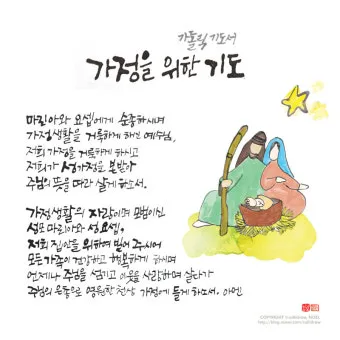 가톨릭 기도서
가정을 위한 기도
마리아와 요셉에게 순종하시며
가정생활을 거룩하게 하신 예수님,
저희 가정을 거룩하게 하시고
저희가 성가정을 본받아
주님의 뜻을 따라 살게 하소서.
가정생활의 자랑이며 모범이신
성모 마리아와 성 요셉,
저희 집안을 위하여 빌어 주시어
모든 가족이 건강하고 행복하게 하시며
언제나 주님을 섬기고 이웃을 사랑하며 살다가
주님의 은총으로 영원한 천상 가정에 들게 하소서. 아멘
COPYRIGHT